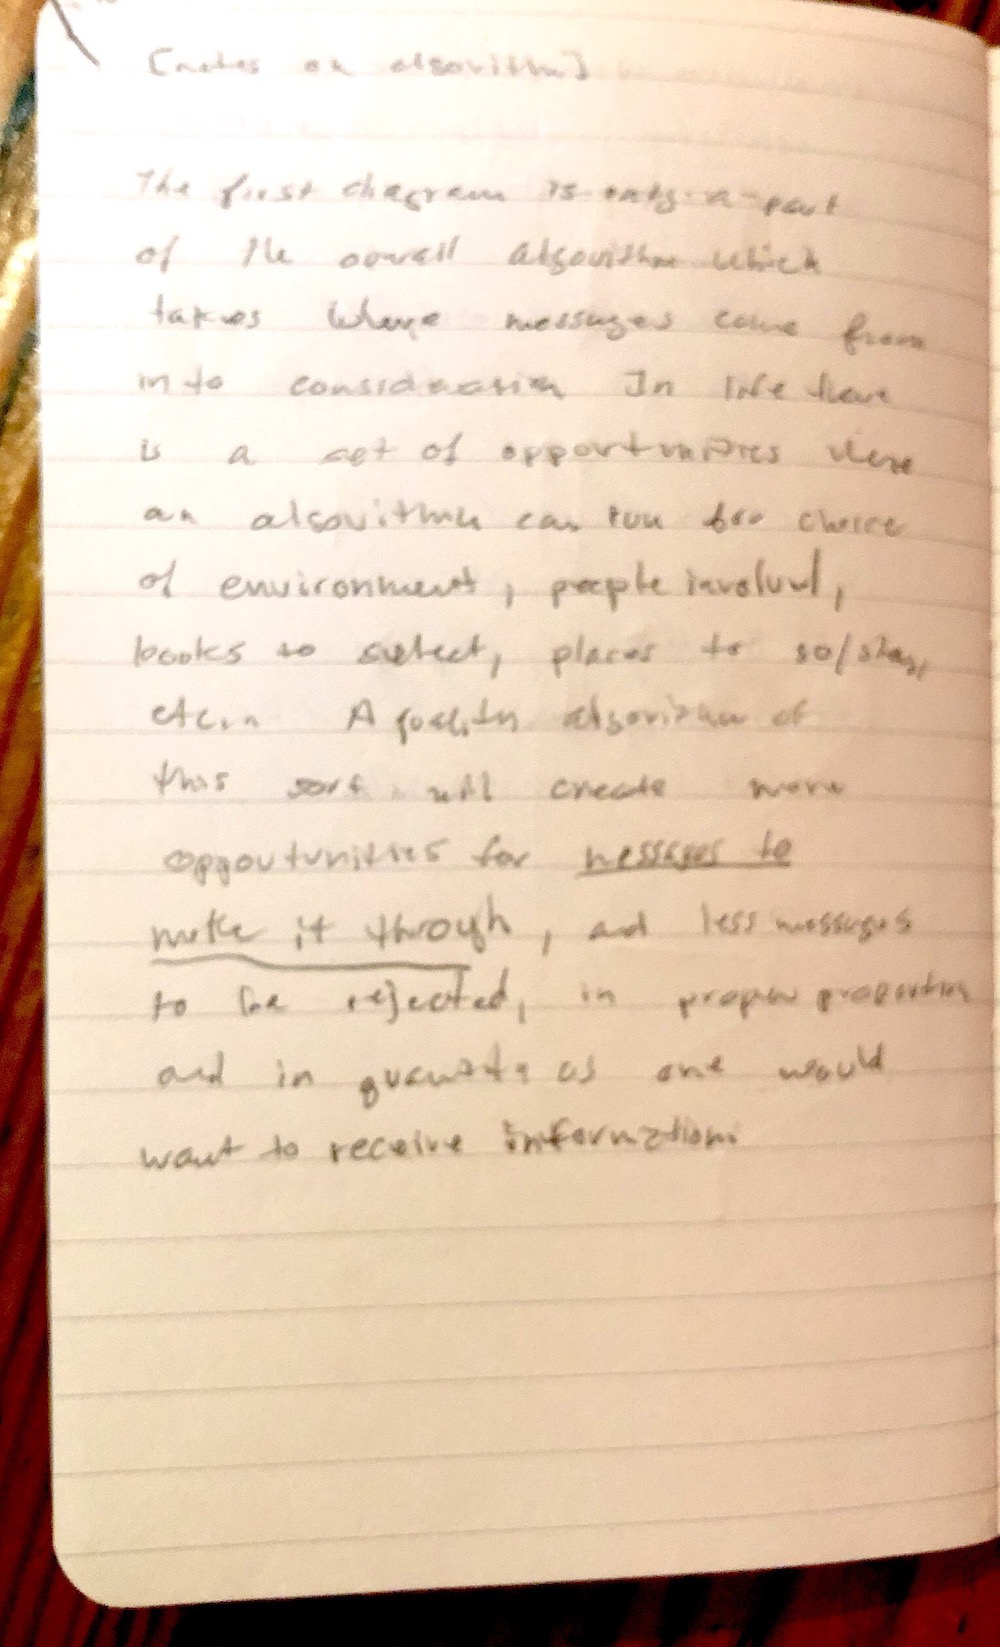 [notes on algorithm]
The first diagram is only a part
of the overall algorithm which
takes where messages come from
into consideration In life there
is a set of opportunities where
an algorithm can run for choice
of environment, people involved,
books to select, places to go/stay,
etc.. A quality algorithm of
this sort will create more
opportunities for messages to
make it through, and less messages
to be rejected, in proper proportion
and in quantity as one would
want to receive information.